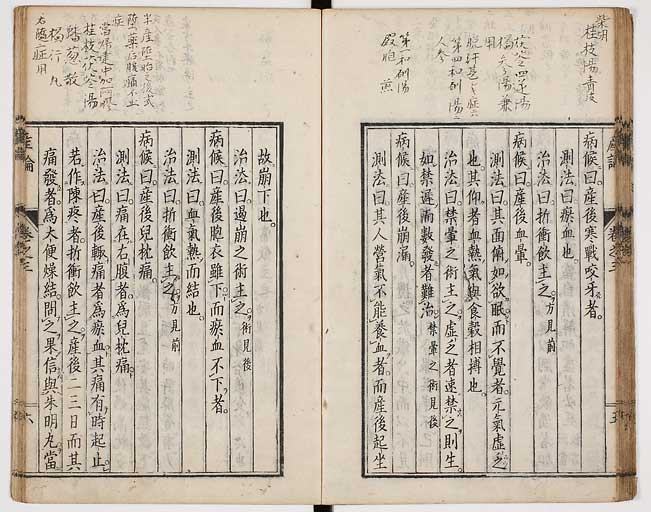 病候曰。産後寒戰咬牙者。
測法曰。瘀血也。
治法曰。折衝飲主之。方見前
病候曰。産後血暈。
測法曰。其面俯如欲眠。而不覺者。元氣虛乏
也。其仰者。血熱氣與食穀相搏也。
治法曰。禁暈之術主之。虛乏者速禁之則生。
如禁遲而數發者難治。禁暈之術見後
病候曰。産後崩漏。
測法曰。其人營氣不能養血者。而産後起坐
産論
卷之三
五
故崩下也。
治法曰。遏崩之術主之。術見後
病候曰。産後胞衣雖下。而瘀血不下者。
測法曰。血氣熱而結也。
治法曰。折衝飲主之。方見前
病候曰。産後兒枕痛。
測法曰。痛在右腹者。爲兒枕痛。
治法曰。産後輙痛者。爲瘀血。其痛有時起止。
若作陳疼者。折衝飲主之。産後二三日而其
痛發者。爲大便燥結。問之果信。與朱明丸。當
産論
卷之三
六
柴胡
桂枝湯
茯苓四逆湯
第一和剤湯
第四和剤湯
人參
桂枝茯苓湯
右隨症用